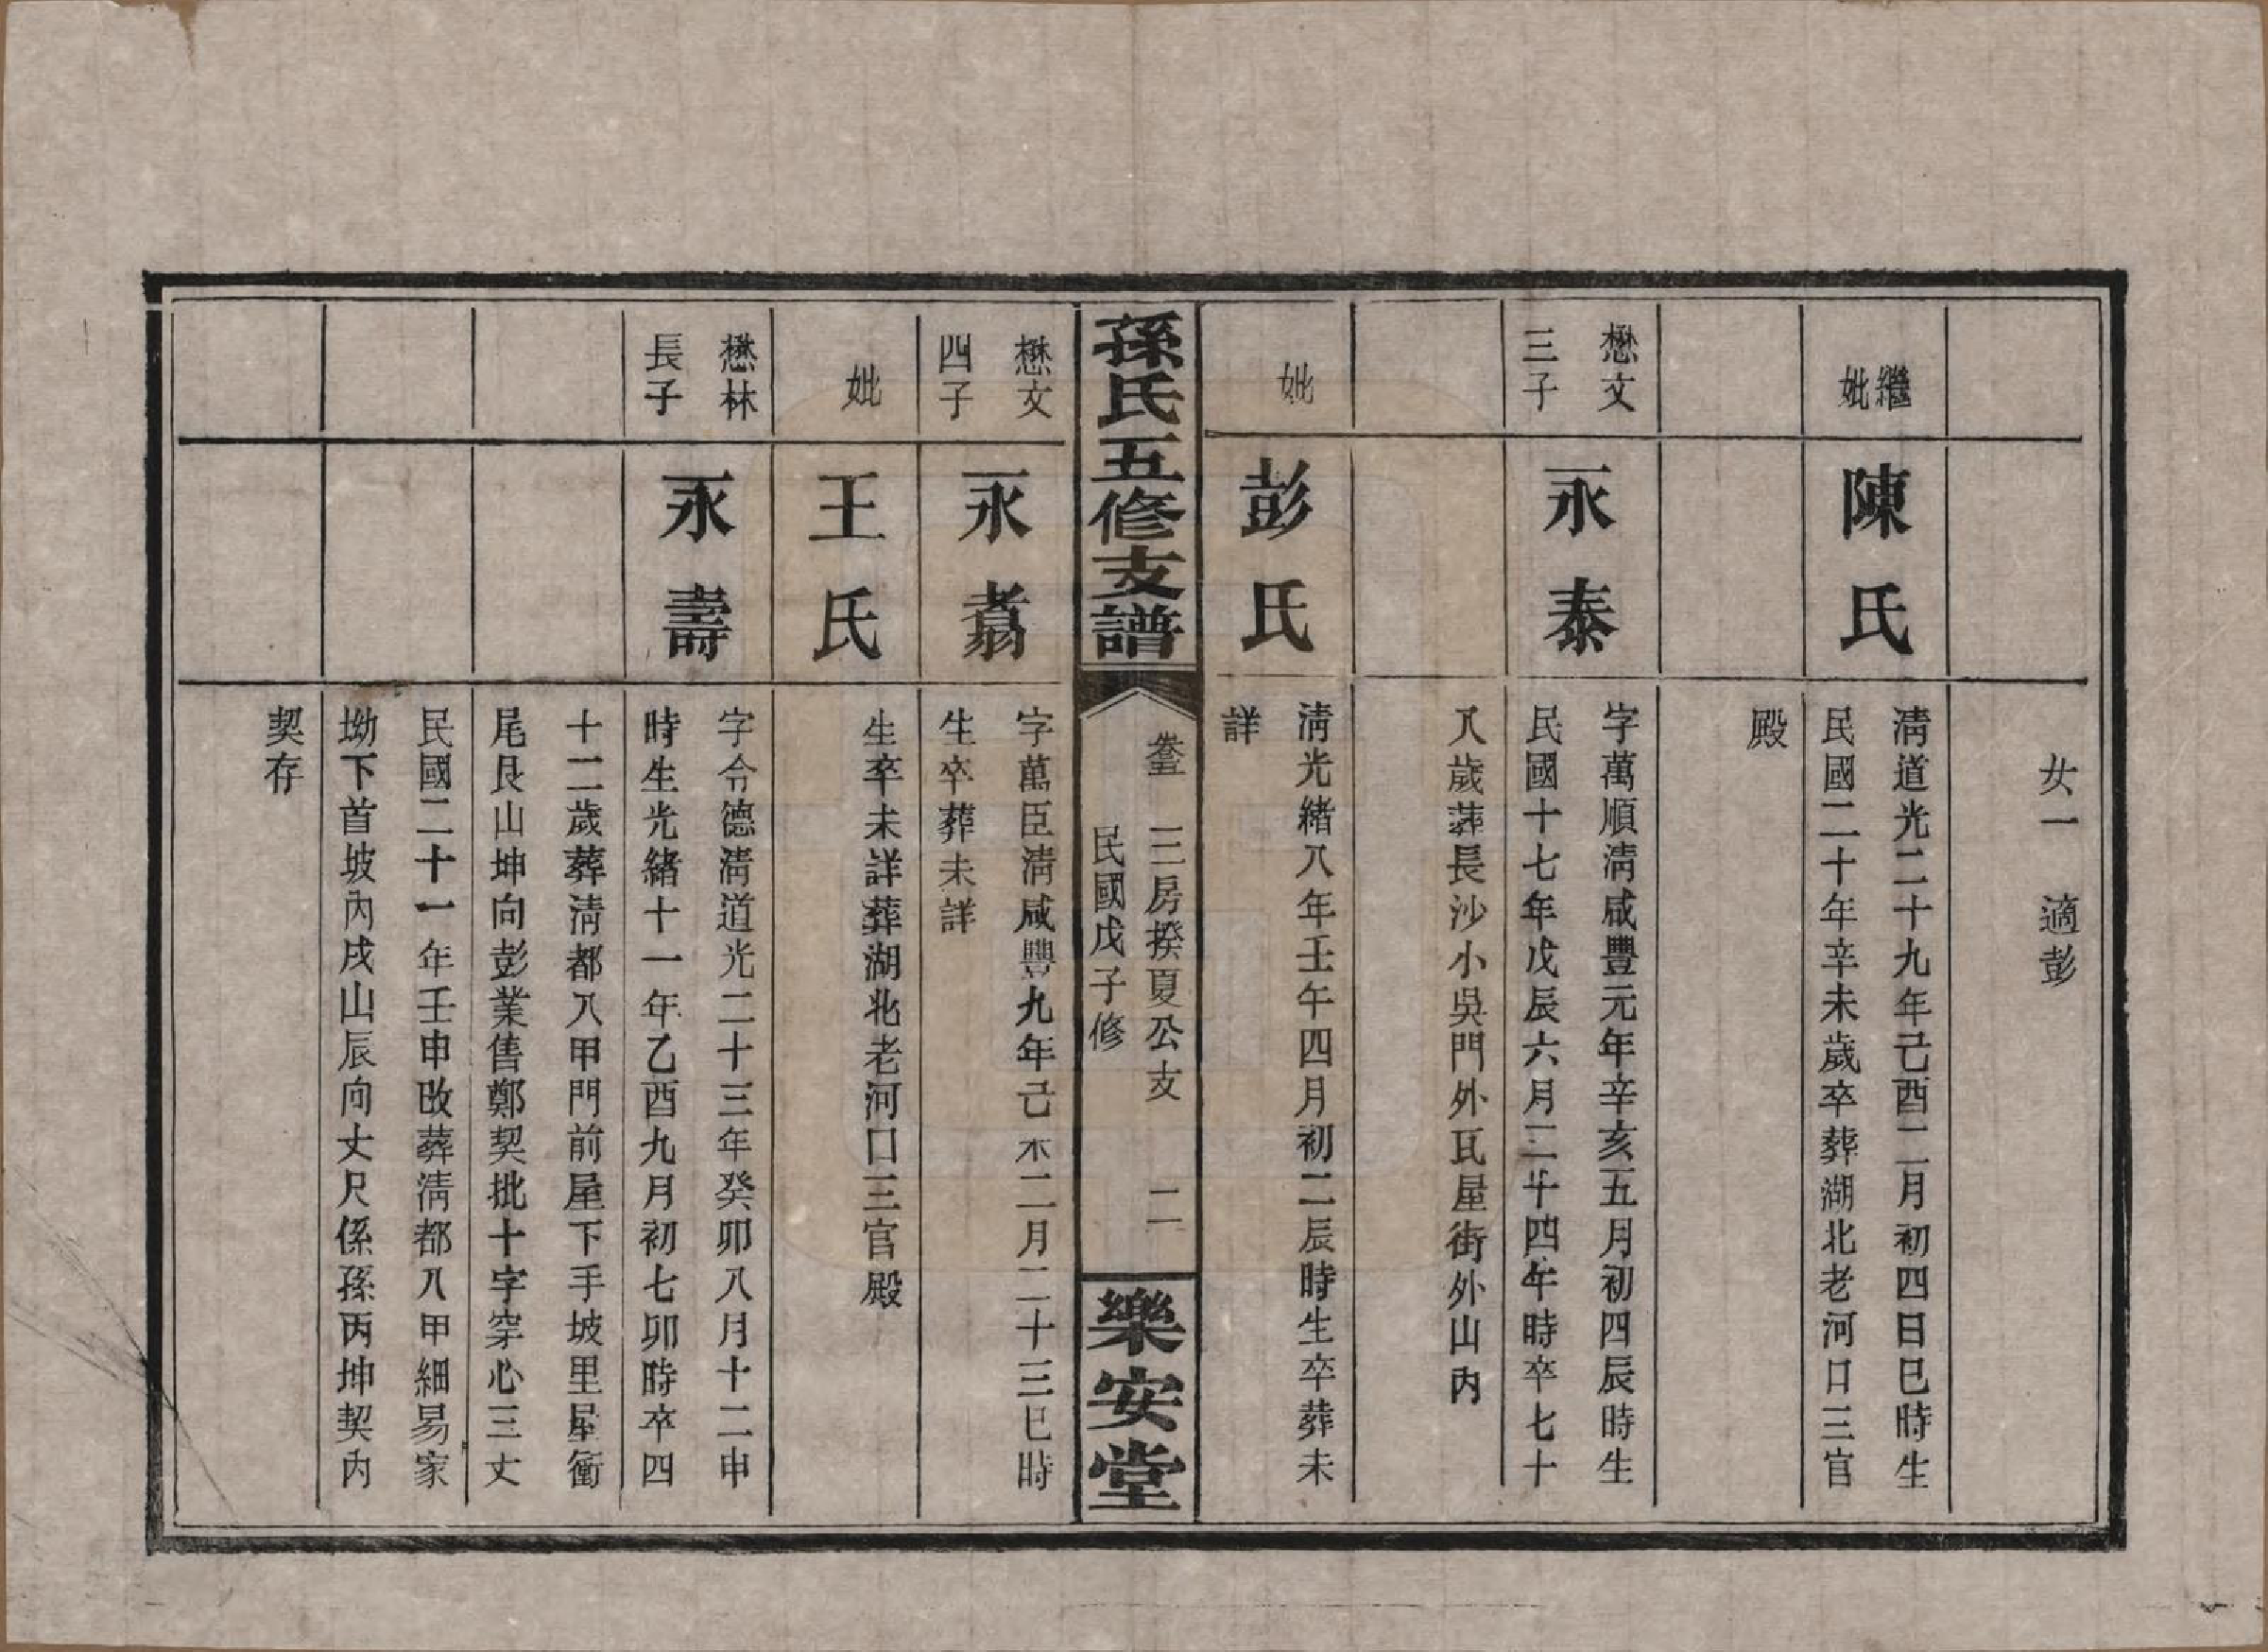 女一　適彭
繼妣
陳氏
淸道光二十九年己酉二月初四日巳時生
民國二十年辛未歲卒葬湖北老河口三官
殿
懋文
三子
永泰
字萬順淸咸豐元年辛亥五月初四辰時生
民國十七年戊辰六月二十四午時卒七十
八歲葬長沙小吳門外瓦屋街外山內
妣
彭氏
淸光緒八年壬午四月初二辰時生卒葬未
詳
孫氏五修支譜
卷三　三房揆夏公支　二
民國戊子修
樂安堂
懋文
四子
永翥
字萬臣淸咸豐九年己未二月二十三巳時
生卒葬未詳
妣
王氏
生卒未詳葬湖北老河口三官殿
懋林
長子
永壽
字令德淸道光二十三年癸卯八月十二申
時生光緒十一年乙酉九月初七卯時卒四
十二歲葬淸都八甲門前屋下手坡里屋衝
尾艮山坤向彭業售鄭契批十字穿心三丈
民國二十一年壬申改葬淸都八甲細易家
坳下首坡內戌山辰向丈尺係孫丙坤契內
契存